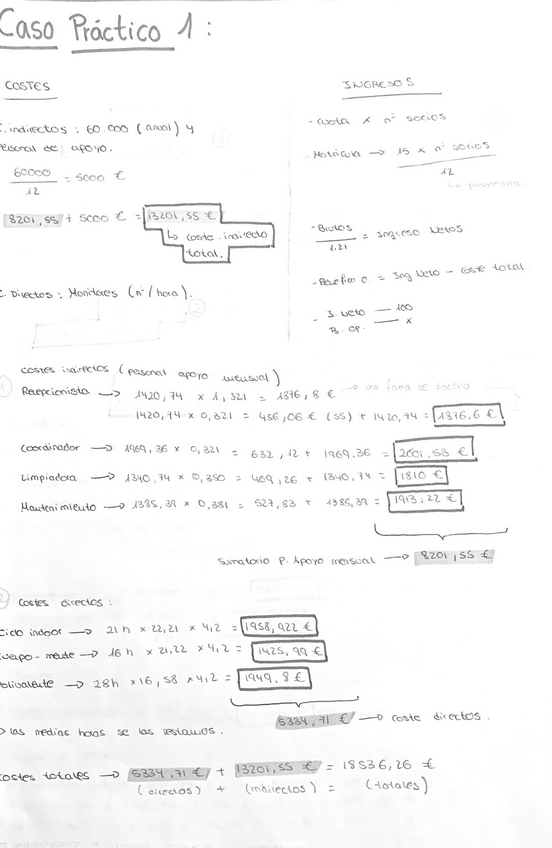 Caso Práctico 1:
COSTES
. indirectos : 60.000 (anual) y
ersonal de apoyo.
60000 / 12 = 5000 €
8201,55 + 5000 € = 13201,55 €
↳ coste indirecto
total.
. Directos : Monitores (nº/hora).
INGRESOS
- cuota x nº socios
- Matrícula → 15 x nº socios / 12
- Brutos / 1,21 = Ingreso Netos
- Benefico O. = Ing Neto - coste total
- I. Neto — 100
B. OP. — x
costes indirectos (personal apoyo mensual)
Recepcionista → 1420,74 x 1,321 = 1876,8 € → una forma de hacerlo
1420,74 x 0,321 = 456,06 € (SS) + 1420,74 = 1876,6 €
Coordinador → 1969,36 x 0,321 = 632,12 + 1969,36 = 2601,53 €
Limpiadora → 1340,74 x 0,350 = 469,26 + 1340,74 = 1810 €
Mantenimiento → 1385,39 x 0,381 = 527,83 + 1385,39 = 1913,22 €
Sumatorio P. Apoyo mensual → 8201,55 €
2 Costes directos :
iclo indoor → 21 h x 22,21 x 4,2 = 1958,922 €
uerpo-mente → 16 h x 21,22 x 4,2 = 1425,99 €
olivalente → 28h x 16,58 x 4,2 = 1949,8 €
5334,71 € → coste directos.
las medias horas se las restamos.
ostes totales → 5334,71 € + 13201,55 € = 18536,26 €
(directos) + (indirectos) = (totales)